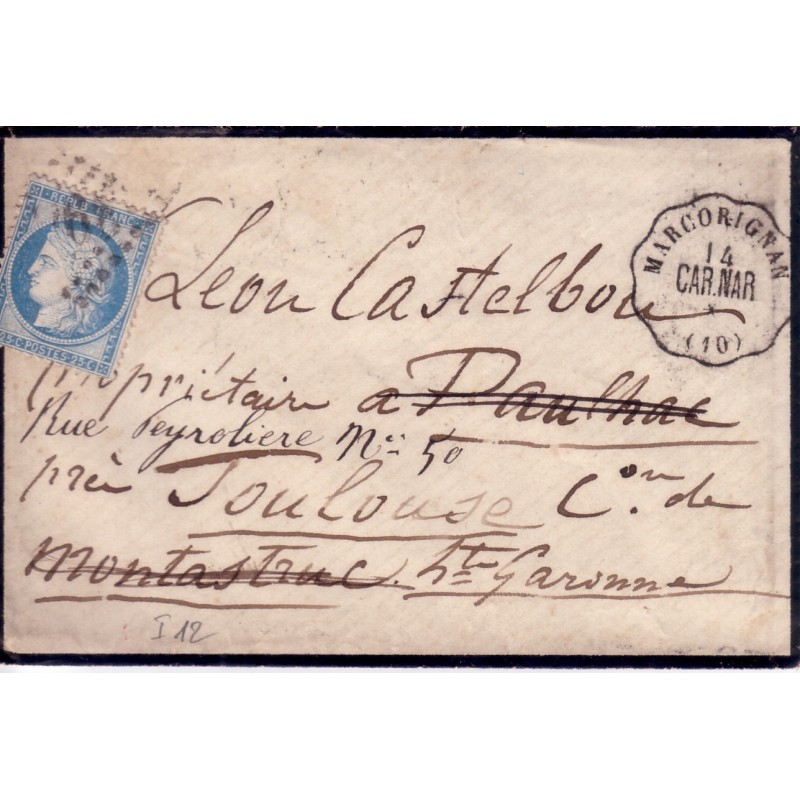 REPUB. FRANC.
25 C. POSTES 25 C.
MARCORIGNAN
14
CAR.NAR
(10)
Leon Castelbou
propriétaire a Paulhac
Rue Peyroliere No. 50
près Toulouse Con. de
Montastruc. Hte Garonne
I 12